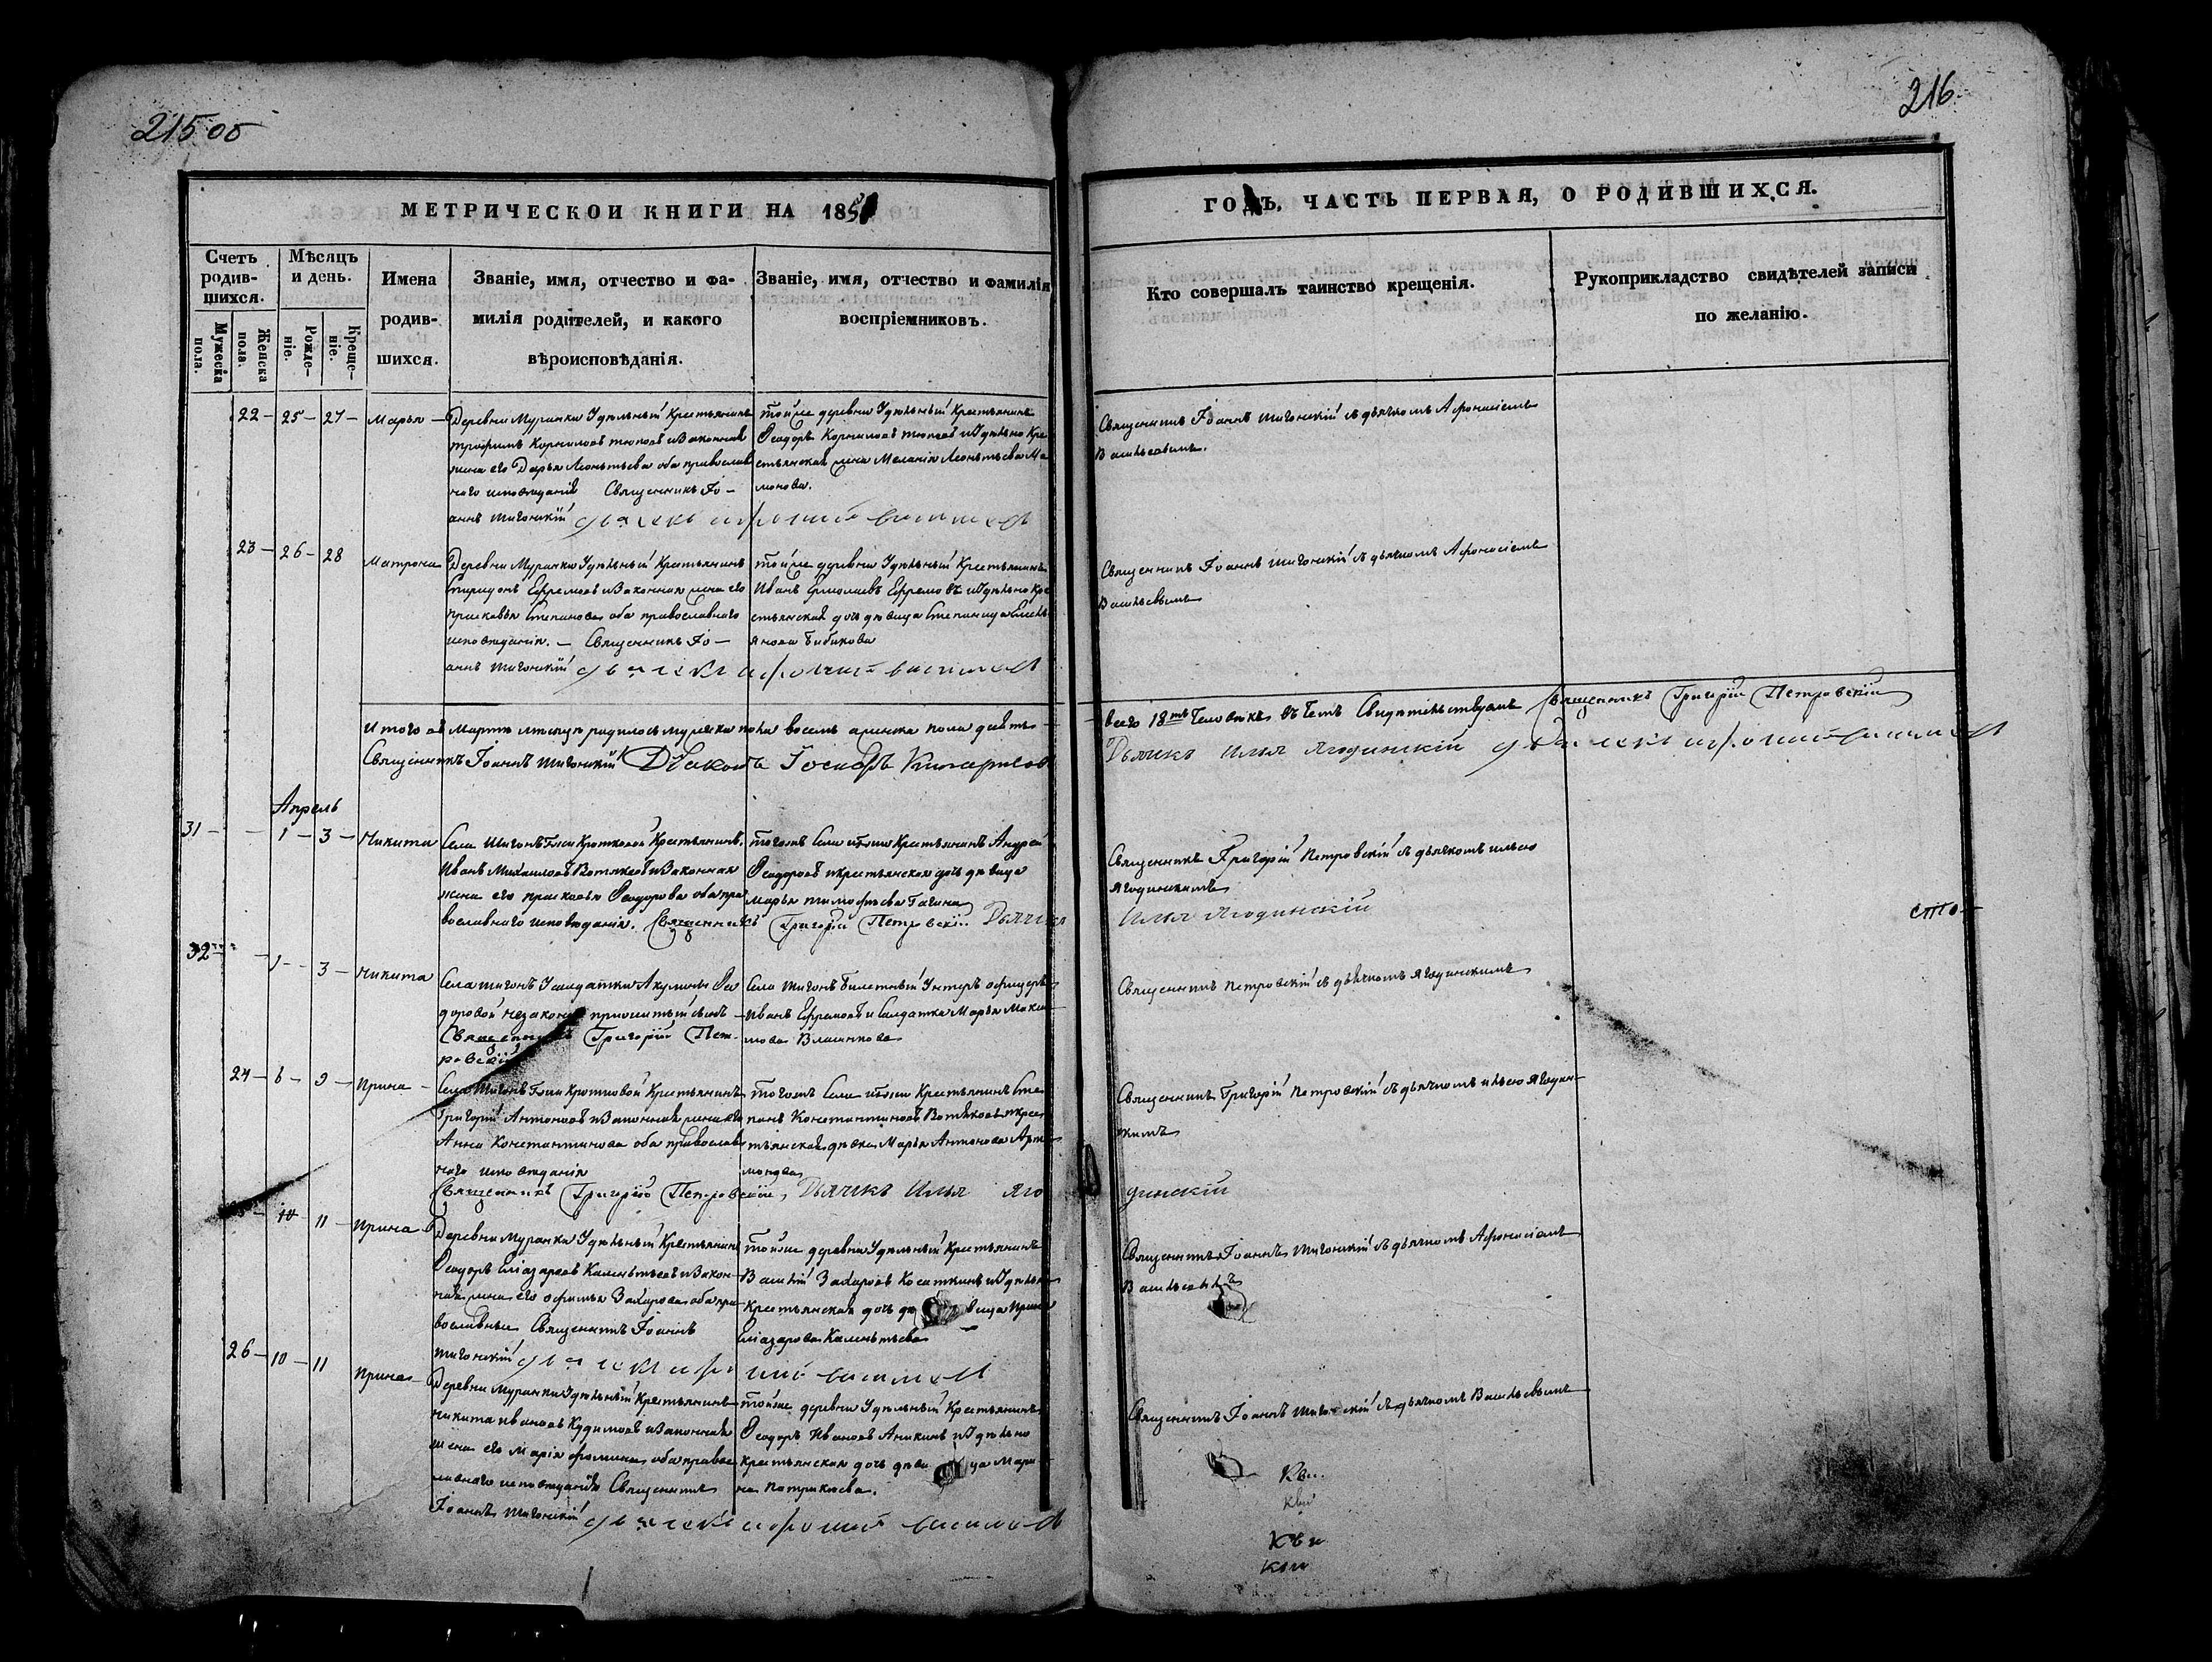 215 об
216
МЕТРИЧЕСКОИ КНИГИ НА 185
ГОДЪ, ЧАСТЬ ПЕРВАЯ, О РОДИВШИХСЯ.
Счетъ родив-шихся.
Мужеска пола.
Женска пола.
Мѣсяцъ и день.
Рожде-ніе.
Креще-ніе.
Имена
родив-
шихся.
Званіе, имя, отчество и фа-
милія родителей, и какого
вѣроисповѣданія.
Званіе, имя, отчество и фамилія
воспріемниковъ.
Кто совершалъ таинство крещенія.
Рукоприкладство свидѣтелей записи
по желанію.
22 - 25 - 27 - Марья
Деревни Муранки Удѣльный Крестьянинъ
Трофимъ Корниловъ и законная
жена его Дарья Леонтьева оба православ
наго исповеданія Священникъ Іо-
аннъ Шигонскій
Тойже деревни Удѣльный Крестьянинъ
Ѳеодоръ Корниловъ и Удѣльно Кре
стьянская жена Меланія Леонтьева Ма
монова.
дьячекъ Афонасій Васильевъ
Священникъ Іоаннъ Шигонскій съ дьячкомъ Афонасіемъ
Васильевымъ.
23 - 26 - 28 Матрона
Деревни Муранки Удѣльный Крестьянинъ
Спиридонъ Ефремовъ и Законная жена его
Прасковья Степанова оба православнаго
исповеданія. - Священникъ Іо-
аннъ Шигонскій
Тойже деревни Удѣльный Крестьянинъ
Иванъ Ермолаевъ Ефремовъ и Удѣльно Кре
стьянская дочь девица Степанида Емель
янова Бибикова
дьячекъ Афонасій Васильевъ
Священникъ Іоаннъ Шигонскій съ дьячкомъ Афонасіемъ
Васильевымъ
Итого въ Мартѣ мѣсяцѣ родилось мужеска пола восемь а женска пола девять
всего 18ть Человѣкъ въ чемъ Свидѣтельствуемъ Священникъ Григорій Петровскій
Священникъ Іоаннъ Шигонскій Діаконъ Іосифъ Кипарисовъ
Дьячекъ Илья Ягодинскій дьячекъ Афонасій Васильевъ
Апрель
31 - 1 - 3 - Никита
Села Шигонъ Крестьянинъ
Иванъ Михайловъ Вотяковъ и Законная
жена его Прасковья Ѳеодорова оба пра
вославнаго исповеданія. Священникъ Григорій Петровскій Дьячекъ
Тогожъ Села Крестьянинъ Андрей
Ѳеодоровъ и крестьянская дочь девица
Марья Тимофѣева Гагина
Священникъ Григорій Петровскій съ дьячкомъ Ильею
Ягодинскимъ
Илья Ягодинскій
32 - 1 - 3 - Никита
Села Шигонъ У солдатки Акулины Ѳео
доровой незаконно прижитый сынъ
Священникъ Григорій Пет-
ровскій
Села Шигонъ билетный Унтеръ офицеръ
Иванъ Ефремовъ и Солдатка Марья
Священникъ Петровскій съ дьячкомъ Ягодинскимъ
24 - 6 - 9 - Ирина -
Села Шигонъ Крестьянинъ
Григорій Антоновъ и Законная жена его
Анна Константинова оба православ
наго исповеданія
Священникъ Григорій Петровскій, Дьячекъ Илья Яго
Тогожъ Села Крестьянинъ Сте
панъ Константиновъ Вотяковъ и крес
тьянская девка Марья Антонова
Священникъ Григорій Петровскій съ дьячкомъ Ильею Ягодин-
скимъ
динскій
10 - 11 - Ирина
Деревни Муранки Удѣльный Крестьянинъ
Ѳеодоръ Еліазаровъ и Закон-
ная жена его Офимья Захарова оба пра
вославныи Священникъ Іоаннъ
Шигонскій
Тойже деревни Удѣльный Крестьянинъ
Василій Захаровъ Косаткинъ и Удѣльно
Крестьянская дочь девица Ирина
Еліазарова
дьячекъ Афонасій Васильевъ
Священникъ Іоаннъ Шигонскій съ дьячкомъ Афонасіемъ
26 - 10 - 11 Ирина
Деревни Муранки Удѣльный Крестьянинъ
Никита Ивановъ и Законная
жена его Марія Фомина оба правос
лавнаго исповеданія Священникъ
Іоаннъ Шигонскій
Тойже деревни Удѣльный Крестьянинъ
Ѳеодоръ Ивановъ Аникинъ и Удѣльно
крестьянская дочь девица Мари
на Патрикѣева.
дьячекъ Афонасій Васильевъ
Священникъ Іоаннъ Шигонскій съ дьячкомъ Васильевымъ